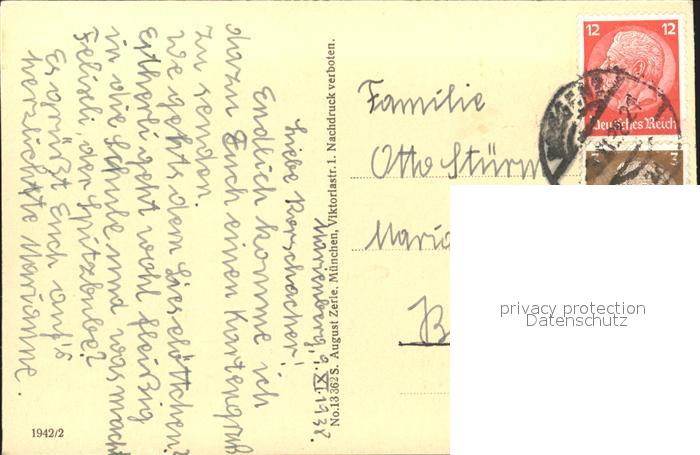 Marienberg, 9. XI. 1938.
Liebe Rorschacher!
Endlich komme ich
dazu Euch einen Kartengruß
zu senden.
Wie gehts dem Lieselöttchen?
Estherli geht wohl fleißig
in die Schule und was macht
Felixli, der Spitzbube?
Es grüßt Euch auf's
herzlichste Marianne.
1942/2
No. 13362 S. August Zerle, München, Viktoriastr. 1. Nachdruck verboten.
Familie
Otto Stürm
Maria
B
12 12
Deutsches Reich
3 3
privacy protection
Datenschutz